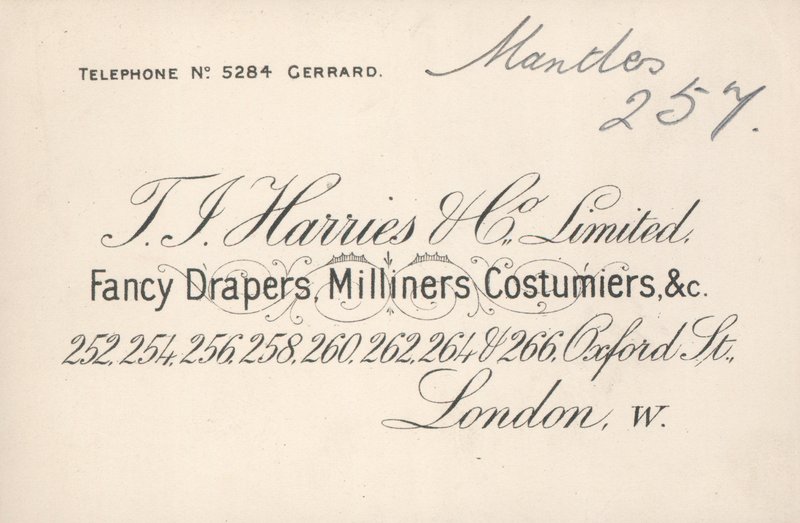 TELEPHONE No. 5284 GERRARD.
Mantles
257.
T. J. Harries & Co., Limited,
Fancy Drapers, Milliners Costumiers, &c.
252, 254, 256, 258, 260, 262, 264 & 266, Oxford St.,
London, W.